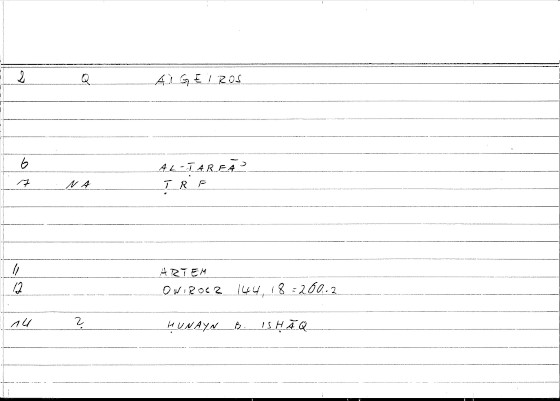 2 Q AIGEIROS
6 AL-ṬARFĀʾ
7 NA ṬRF
11 ARTEM
12 ONIROCR 144,18=260.2
14 2 ḤUNAYN B. ISḤĀQ